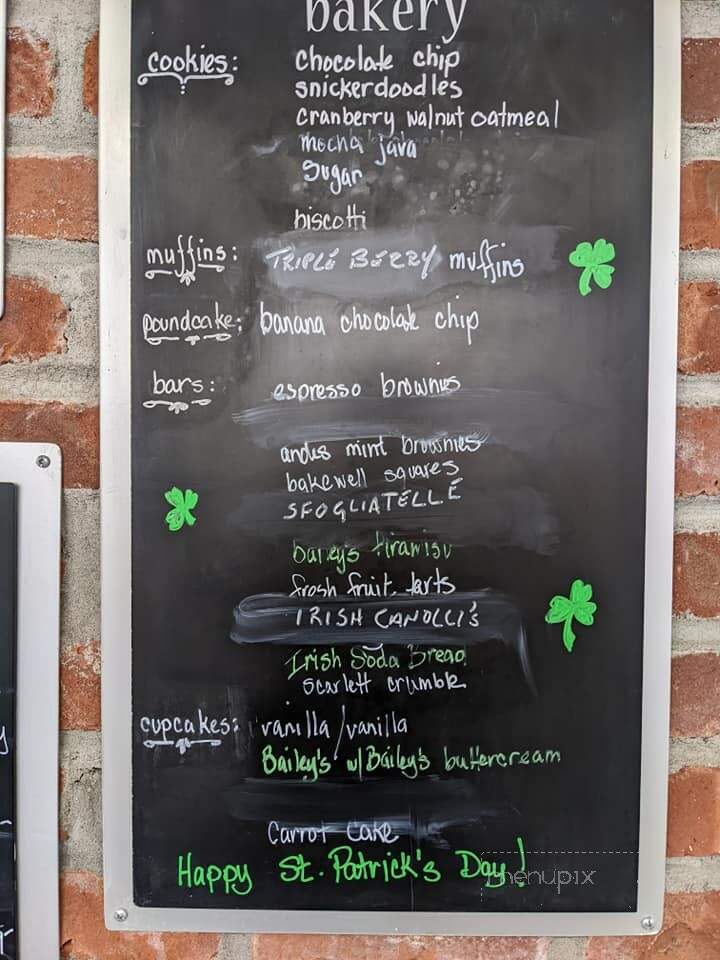 bakery
cookies: chocolate chip
snickerdoodles
cranberry walnut oatmeal
mocha java
Sugar
biscotti
muffins: TRIPLE BERRY muffins
poundcake: banana chocolate chip
bars: espresso brownies
andes mint brownies
bakewell squares
SFOGLIATELLE
bailey's tiramisu
fresh fruit tarts
IRISH CANOLLI'S
Irish Soda Bread
scarlett crumble
cupcakes: vanilla/vanilla
Bailey's w/Bailey's buttercream
Carrot Cake
Happy St. Patrick's Day!
menupix